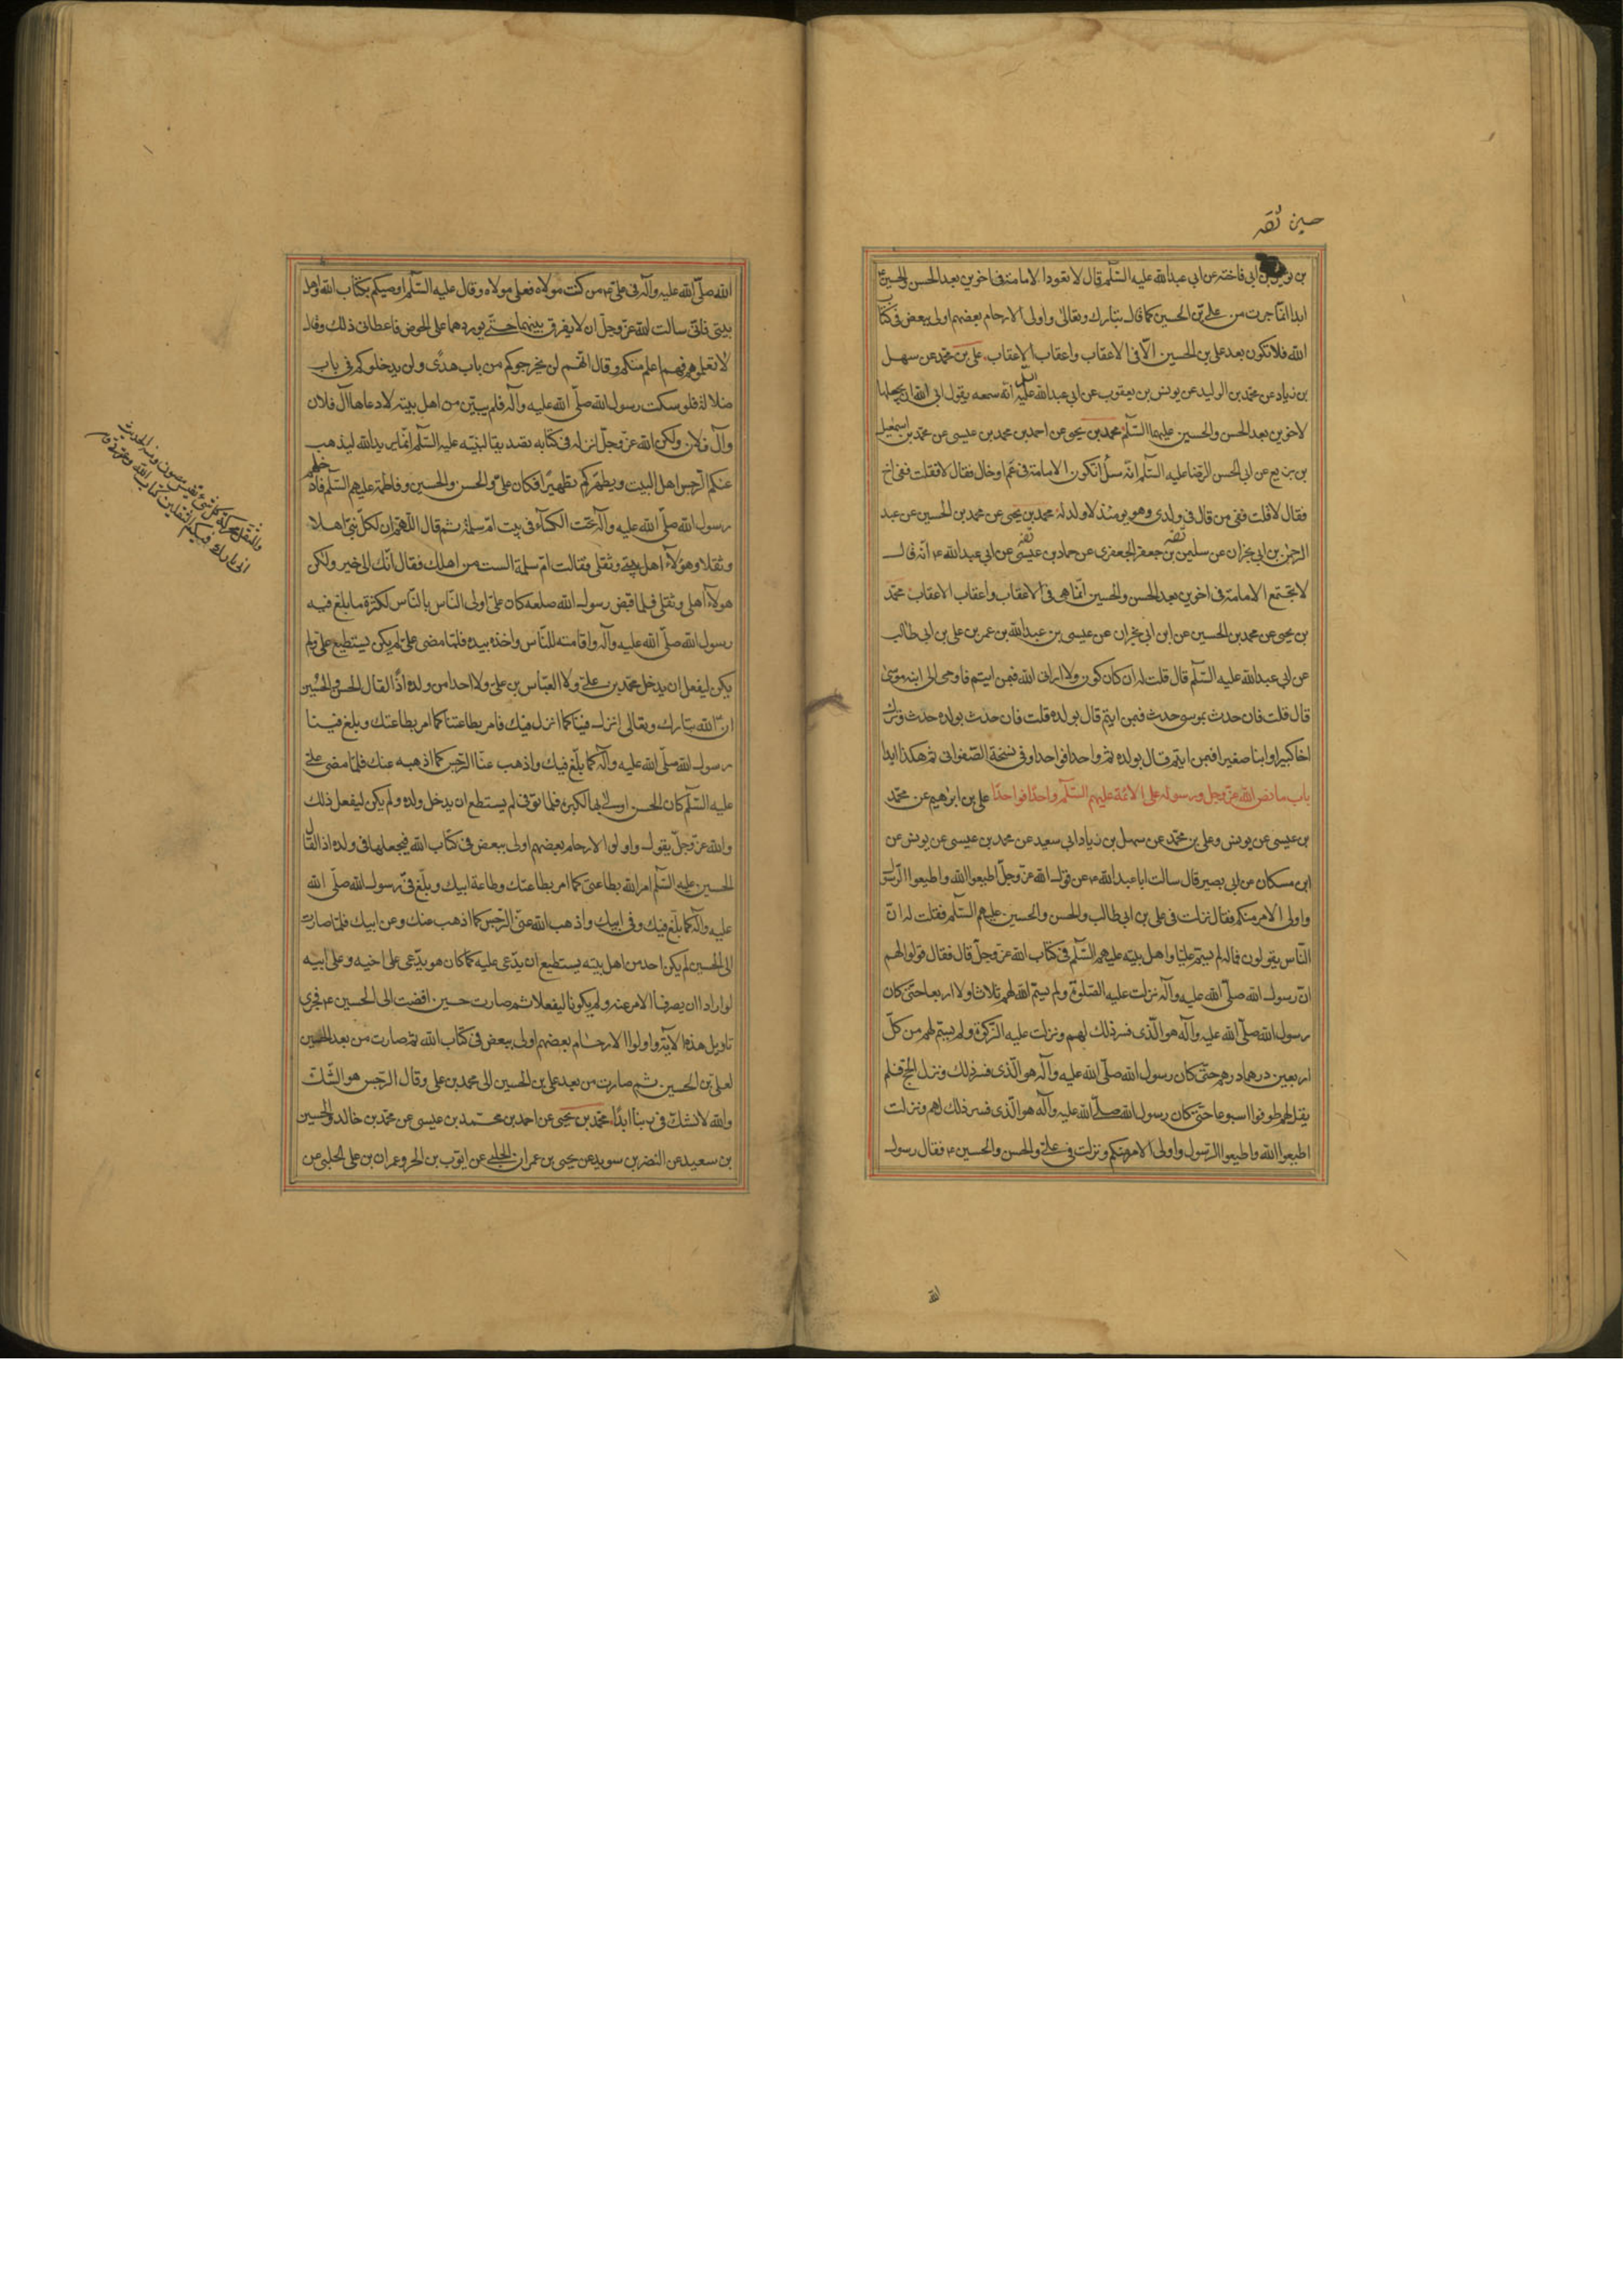 حسين ثقه
بن ابي فاخته عن ابي عبد الله عليه السّلم قال لا تعود الامامة فى اخوين بعد الحسن والحسين
ابدا انّما جرت من علي بن الحسين كما قال تبارك وتعالى واولى الارحام بعضهم اولى ببعض فى كتاب
الله فلا تكون بعد على بن الحسين الّا فى الاعقاب واعقاب الاعقاب على بن محمّد عن سهل
بن زياد عن محمّد بن الوليد عن يونس بن يعقوب عن ابي عبد الله عليه السلم انّه سمعه يقول ابى الله ان يجعلها
لاخوين بعد الحسن والحسين عليهما السّلم محمد بن يحيى عن احمد بن محمد بن عيسى عن محمّد بن اسمعيل
بن بزيع عن ابي الحسن الرّضا عليه السّلم انّه سئل اتكون الامامة فى عمّ او خال فقال لا فقلت ففى اخ
فقال لا قلت ففى من قال فى ولدى وهو يومئذ لا ولد له محمد بن يحيى عن محمد بن الحسين عن عبد
الرحمن بن ابي نجران عن سليمن بن جعفر الجعفرى عن حماد بن عيسى عن ابي عبد الله ع انّه قال
ثقه ثقه
لا تجتمع الامامة فى اخوين بعد الحسن والحسين انّما هى فى الاعقاب واعقاب الاعقاب محمّد
بن يحيى عن محمد بن الحسين عن ابن ابي نجران عن عيسى بن عبد الله بن عمر بن على بن ابى طالب
عن ابي عبد الله عليه السّلم قال قلت له ان كان كون ولا ارانى الله فبمن ايتم فاوحى الى ابنه موسى
قال قلت فان حدث بموسى حدث فبمن ايتم قال بولده قلت فان حدث بولده حدث وترك
اخا كبيرا وابنا صغيرا فبمن ايتم قال بولده ثم واحدا فواحدا وفى نسخة الصّفوانى ثم هكذا ابدا
باب ما نص الله عزّ وجل ورسوله على الائمّة عليهم السّلم واحدًا فواحدًا على بن ابرهيم عن محمّد
بن عيسى عن يونس وعلى بن محمّد عن سهل بن زياد ابي سعيد عن محمد بن عيسى عن يونس عن
ابن مسكان عن ابى بصير قال سالت ابا عبد الله ع عن قول الله عزّ وجلّ اطيعوا الله واطيعوا الرّسول
واولى الامر منكم فقال نزلت فى على بن ابي طالب والحسن والحسين عليهم السّلم فقلت له انّ
النّاس يقولون فما له لم يسم عليّا واهل بيته عليهم السّلم فى كتاب الله عزّ وجلّ قال فقال قولوا لهم
انّ رسول الله صلّى الله عليه وآله نزلت عليه الصّلوة ولم يسمّ الله لهم ثلاثا ولا اربعا حتّى كان
رسول الله صلّى الله عليه وآله هو الّذى فسر ذلك لهم ونزلت عليه الزّكوة ولم يسمّ لهم من كلّ
اربعين درهما درهم حتّى كان رسول الله صلّى الله عليه وآله هو الّذى فسر ذلك ونزل الحجّ فلم
يقل لهم طوفوا اسبوعا حتّى كان رسول الله صلّى الله عليه وآله هو الّذى فسر ذلك لهم ونزلت
اطيعوا الله واطيعوا الرّسول واولى الامر منكم ونزلت فى علىّ والحسن والحسين ع فقال رسول
الله
الله صلّى الله عليه وآله فى علىّ ع من كنت مولاه فعلى مولاه وقال عليه السّلم اوصيكم بكتاب الله واهل
بيتى فانّى سالت الله عزّ وجلّ ان لا يفرق بينهما حتّى يوردهما على الحوض فاعطانى ذلك وقال
لا تعلموهم فهم اعلم منكم وقال انّهم لن يخرجوكم من باب هدًى ولن يدخلوكم فى باب
ضلالة فلو سكت رسول الله صلّى الله عليه وآله فلم يبيّن من اهل بيته لادعاها آل فلان
وآل فلان ولكن الله عزّ وجلّ انزله فى كتابه تصديقا لنبيّه عليه السّلم انّما يريد الله ليذهب
عنكم الرّجس اهل البيت ويطهّركم تطهيرًا فكان علىّ والحسن والحسين وفاطمة عليهم السّلم فادخلهم
رسول الله صلّى الله عليه وآله تحت الكساء فى بيت امّ سلمة ثم قال اللّهم ان لكلّ نبىّ اهلا
وثقلا وهؤلآء اهل بيتى وثقلى فقالت امّ سلمة الست من اهلك فقال انّك الى خير ولكن
هولآء اهلى وثقلى فلما قبض رسول الله صلعم كان علىّ اولى النّاس بالنّاس لكثرة ما بلغ فيه
رسول الله صلّى الله عليه وآله واقامته للنّاس واخذه بيده فلمّا مضى علىّ لم يكن يستطيع علىّ ولم
يكن ليفعل ان يدخل محمّد بن علىّ ولا العبّاس بن علىّ ولا احدا من ولده اذًا لقال الحسن والحسين
انّ الله تبارك وتعالى انزل فينا كما انزل فيك فامر بطاعتنا كما امر بطاعتك وبلغ فينا
رسول الله صلّى الله عليه وآله كما بلّغ فيك واذهب عنّا الرّجس كما اذهبه عنك فلمّا مضى علىّ
عليه السّلم كان الحسن اولى بها لكبره فلمّا توفى لم يستطع ان يدخل ولده ولم يكن ليفعل ذلك
والله عزّ وجلّ يقول واولوا الارحام بعضهم اولى ببعض فى كتاب الله فيجعلها فى ولده اذا لقال
الحسين عليه السّلم امر الله بطاعتى كما امر بطاعتك وطاعة ابيك وبلّغ فىّ رسول الله صلّى الله
عليه وآله كما بلّغ فيك وفى ابيك واذهب الله عنّى الرّجس كما اذهب عنك وعن ابيك فلمّا صارت
الى الحسين لم يكن احد من اهل بيته يستطيع ان يدّعى عليه كما كان هو يدّعى على اخيه وعلى ابيه
لو ارادا ان يصرفا الامر عنه ولم يكونا ليفعلا ثم صارت حين افضت الى الحسين ع فجرى
تاويل هذه الآية واولوا الارحام بعضهم اولى ببعض فى كتاب الله ثمّ صارت من بعد الحسين
لعلى بن الحسين ثم صارت من بعد على بن الحسين الى محمد بن على وقال الرّجس هو الشّكّ
والله لا نشكّ فى ربنا ابدًا محمّد بن يحيى عن احمد بن محمّد بن عيسى عن محمّد بن خالد والحسين
بن سعيد عن النضر بن سويد عن يحيى بن عمران الحلبى عن ايّوب بن الحر وعمران بن على الحلبى عن
والثقل محركة كل شئ نفيس مصون ومنه الحديث
انى تارك فيكم الثقلين كتاب الله وعترتى